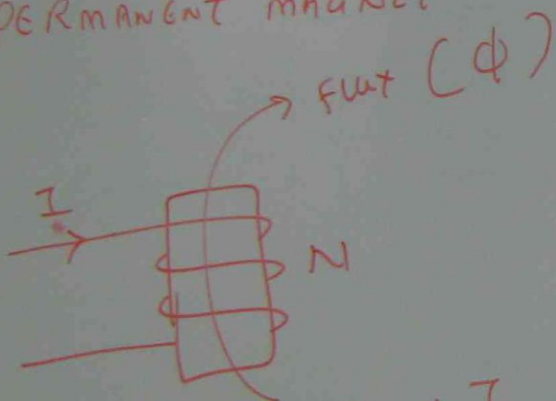 PERMANENT MAGNET
flux (Φ)
I
N
I